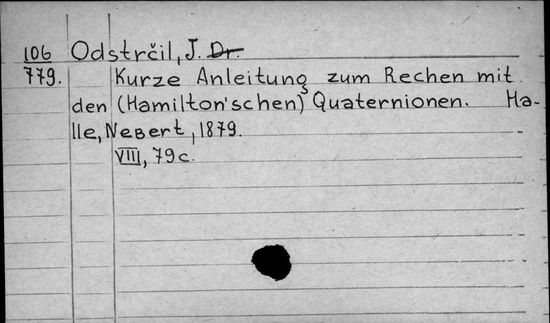 106 Odstrčil, J. Dr.
779. Kurze Anleitung zum Rechen mit
den (Hamilton'schen) Quaternionen. Ha-
lle, Nebert, 1879.
VIII, 79c.